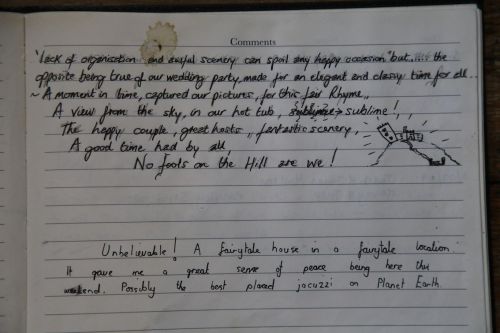 Comments
"Lack of organisation and awful scenery can spoil any happy occasion" but.... the
opposite being true of our wedding party, made for an elegant and classy time for all...
~ A moment in time, captured our pictures, for this fair Rhyme,,
A view from the sky, in our hot tub, sublime!,,
The happy couple, great hosts,, fantastic scenery,
A good time had by all,
No fools on the Hill are we!
Unbelievable! A fairytale house in a fairytale location.
It gave me a great sense of peace being here this
weekend. Possibly the best placed jacuzzi on Planet Earth.